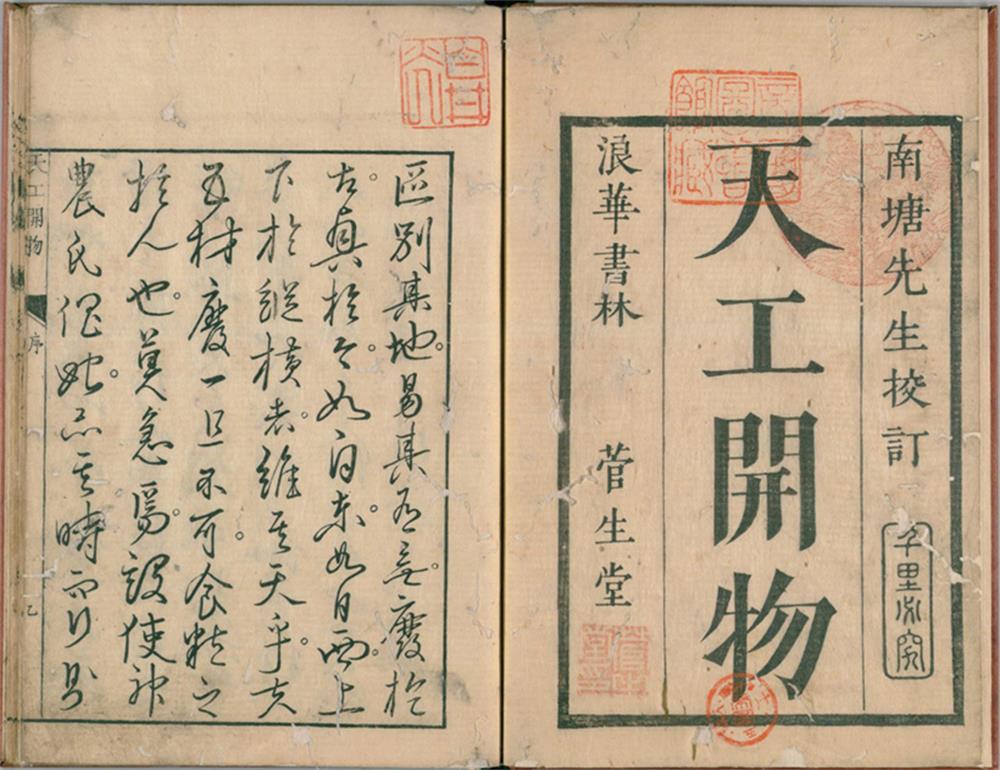 帝國圖書館藏
南塘先生挍訂
千里必究
天工開物
浪華書林 菅生堂
區別其地。易其有無。廢於
古。興於今。如自東。如自西。上
下於縱橫者。維其天乎。夫
五材廢一且不可。食粒之
於人也。莫急焉。設使神
農氏 其時而行則
天工開物 序